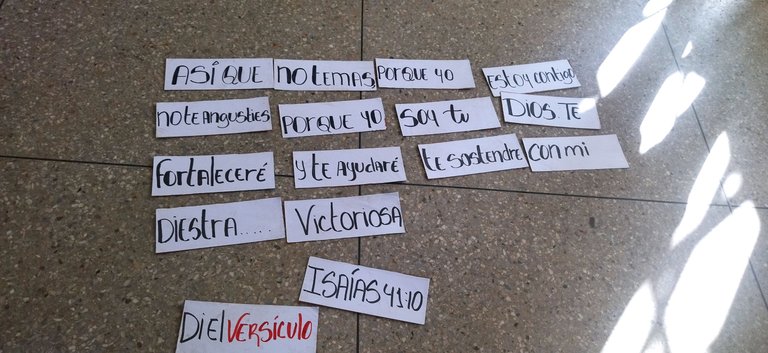 ASÍ QUE no temas, porque yo estoy contigo
no te Angusties porque yo soy tu Dios te
Fortaleceré y te Ayudaré te sostendre con mi
Diestra..... Victoriosa
ISAÍAS 41:10
Di el VERSÍCULO